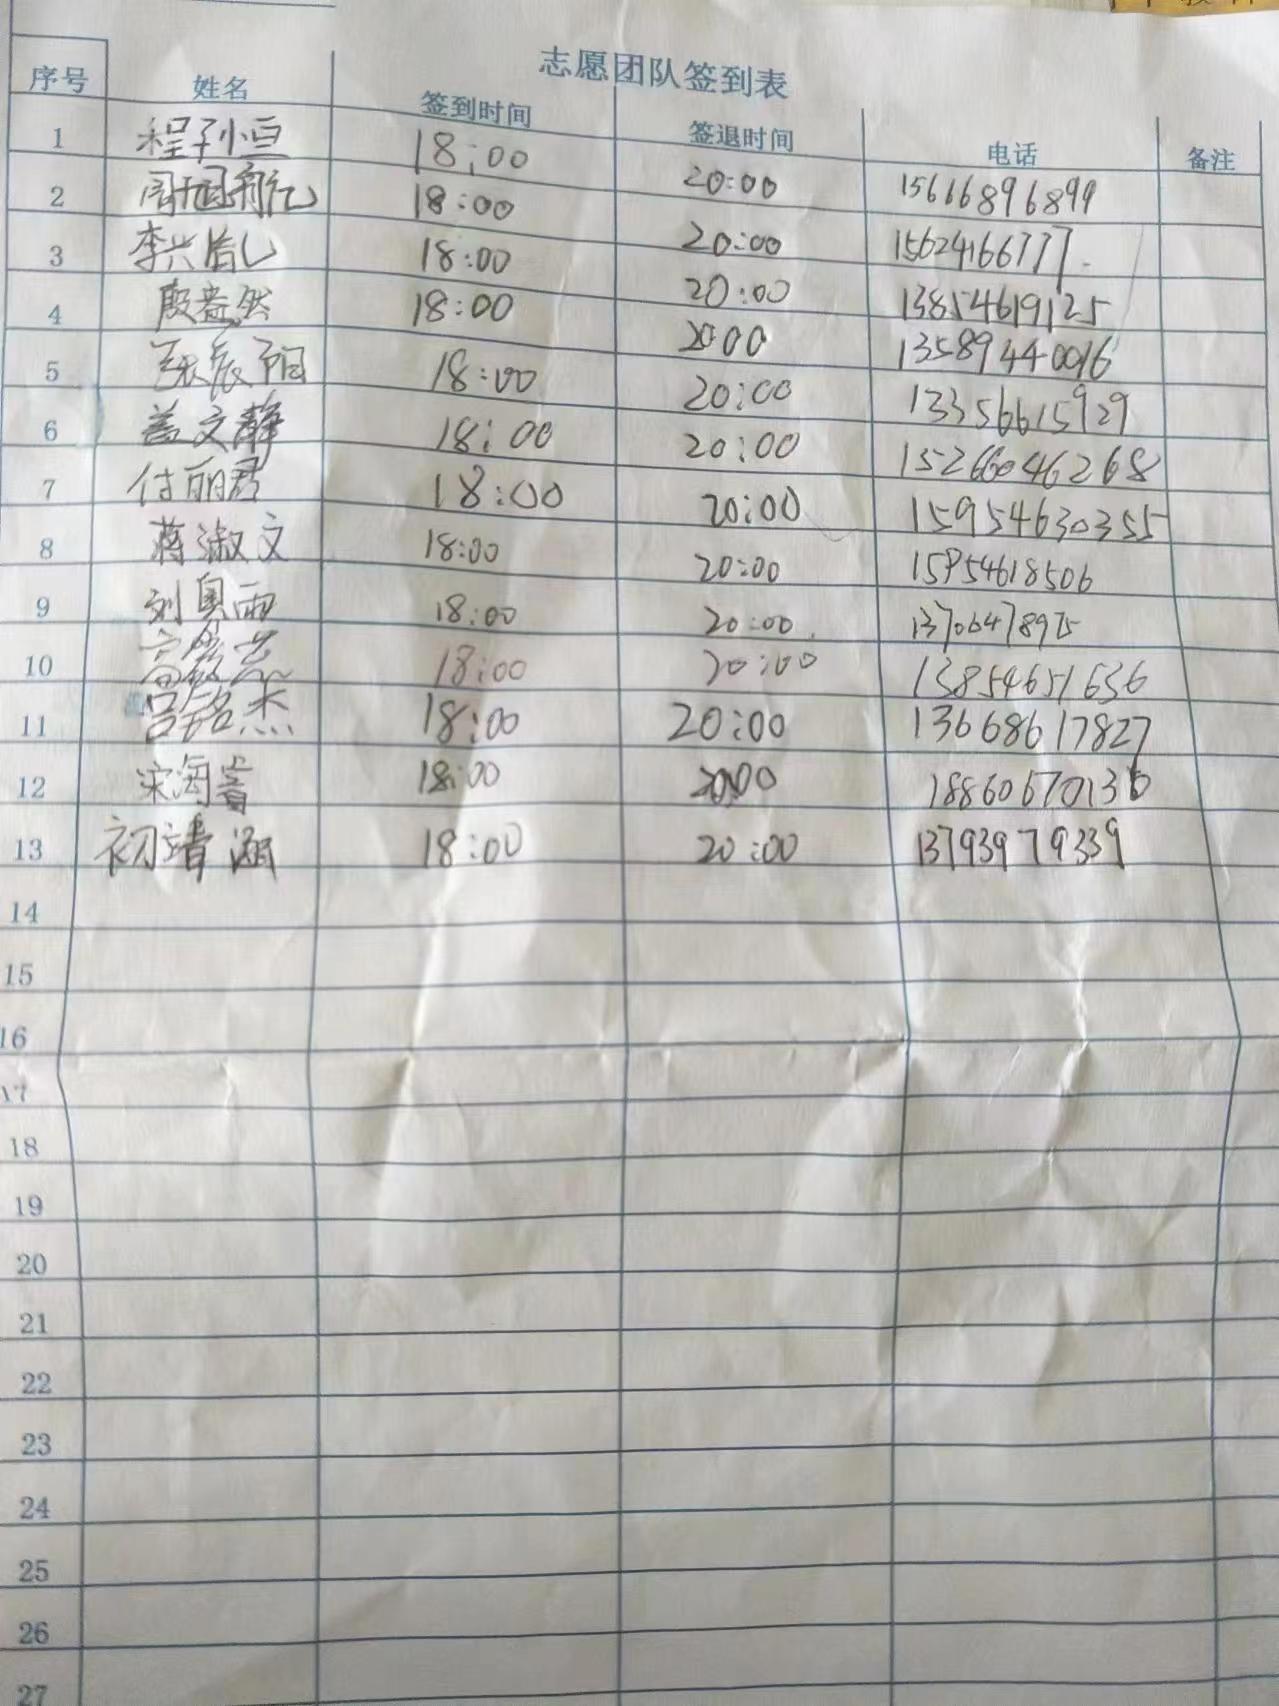 志愿团队签到表
序号 姓名 签到时间 签退时间 电话 备注
1 程子恒 18:00 20:00 15616896899
2 周旭航 18:00 20:00 15624166777
3 李兴 18:00 20:00 13854619125
4 殷 然 18:00 20:00 13589440016
5 张辰阳 18:00 20:00 13356615929
6 盖文静 18:00 20:00 15266046268
7 付丽君 18:00 20:00 15954630355
8 蒋淑文 18:00 20:00 15954618506
9 刘奥雨 18:00 20:00 13706478975
10 高 18:00 20:00 13854651636
11 吕铭杰 18:00 20:00 13668617827
12 宋海 18:00 20:00 18860670136
13 初靖涵 18:00 20:00 13793979339
14
15
16
17
18
19
20
21
22
23
24
25
26
27